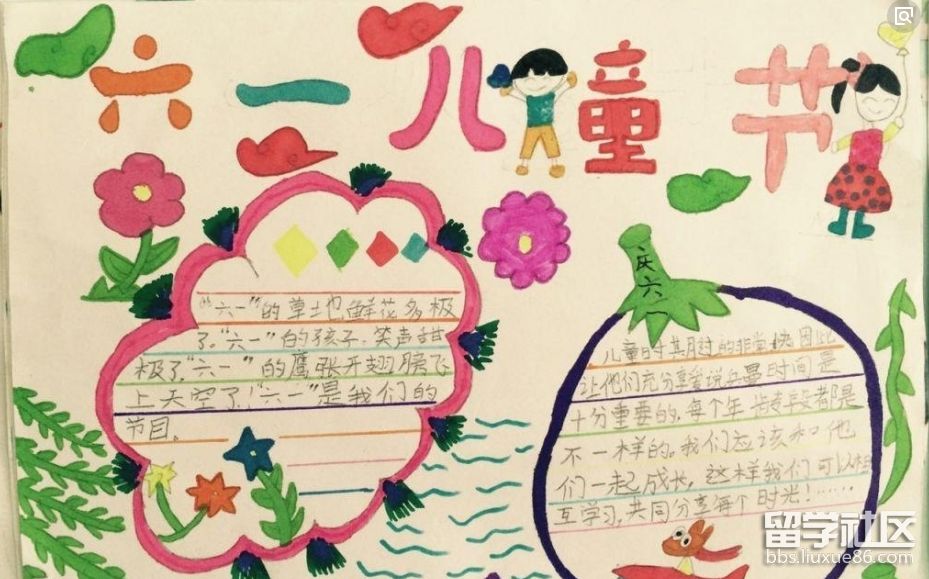 六一儿童节
"六一"的草地鲜花多极
了。"六一"的孩子.笑声甜
极了"六一"的鹰,张开翅膀飞
上天空了!"六一"是我们的
节目。
庆六一
儿童时其月过的非常快.因此
让他们充分享爱说只曼时间是
十分重要的,每个年龄段都是
不一样的。我们应该和他
们一起成长,这样我们可以相
互学习,共同分享每个时光!……
留学社区
bbs.liuxue86.com